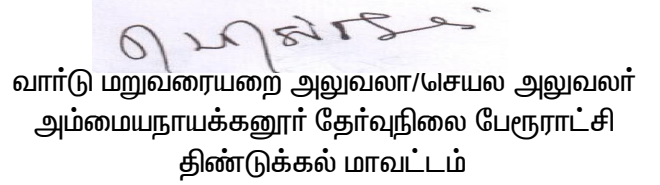 வார்டு மறுவரையறை அலுவலா/செயல அலுவலர்
அம்மையநாயக்கனூர் தேர்வுநிலை பேரூராட்சி
திண்டுக்கல் மாவட்டம்